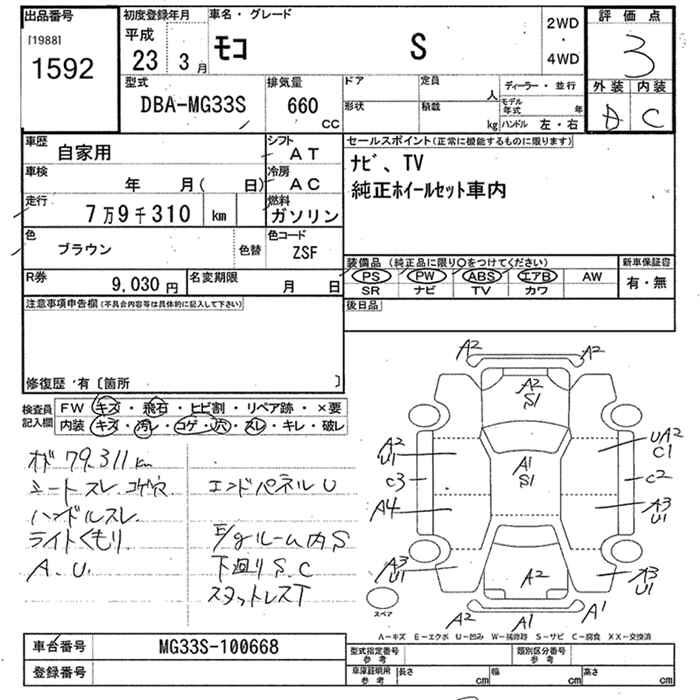 出品番号
[1988]
1592
初度登録年月
平成
23 3月
車名・グレード
モコ S
2WD
・
4WD
評価点
3
外装 内装
D C
型式
DBA-MG33S
排気量
660
CC
ドア
定員
人
ディーラー・並行
形状
積載
kg
モデル年式
年
ハンドル 左・右
車歴
自家用
シフト
AT
セールスポイント(正常に機能するものに限ります)
ナビ、TV
純正ホイールセット車内
車検
年 月( 日)
冷房
AC
走行
7万9千310 km
燃料
ガソリン
色
ブラウン
色替
色コード
ZSF
装備品 (純正品に限り○をつけてください)
新車保証書
PS PW ABS エアB AW
SR ナビ TV カワ
有・無
R券
9,030 円
名変期限
月 日
後日品
注意事項申告欄(不具合内容等は具体的に記入して下さい)
修復歴・有〔箇所 〕
検査員
記入欄
FW キズ・飛石・ヒビ割・リペア跡・×要
内装 キズ・汚レ・コゲ・穴・スレ・キレ・破レ
オド 79,311km
シートスレ.コゲ穴
ハンドルスレ
ライトくもり
A.U.
エンドパネルU
E/gルーム内S
下廻りS.C
スタットレスT
A2
A2
A2
S1
A2
U1
UA2
C1
A1
S1
C3
C2
A4
A3
U1
A3
U1
A2
A3
U1
A2
A1
A1
スペア
A-キズ E-エクボ U-凹み W-補修跡 S-サビ C-腐食 XX-交換済
車台番号
MG33S-100668
登録番号
型式指定番号
参考
類別区分番号
参考
車庫証明用
参考
長さ
cm
幅
cm
高さ
cm